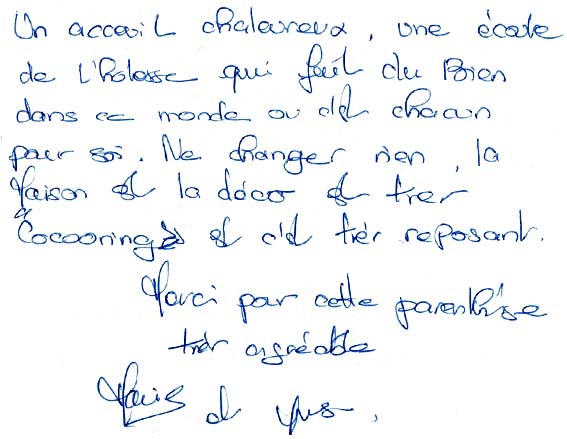 Un accueil chaleureux, une écoute
de l'hotesse qui fait du Bien
dans ce monde ou c'est chacun
pour soi. Ne changer rien, la
Maison et la déco et trer
Cocooning et c'est trér reposant.
Merci par cette parenthèse
trér agréable
et Yves.